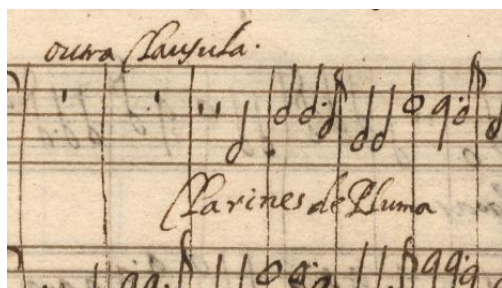 outra Clausula.
Clarines de Pluma